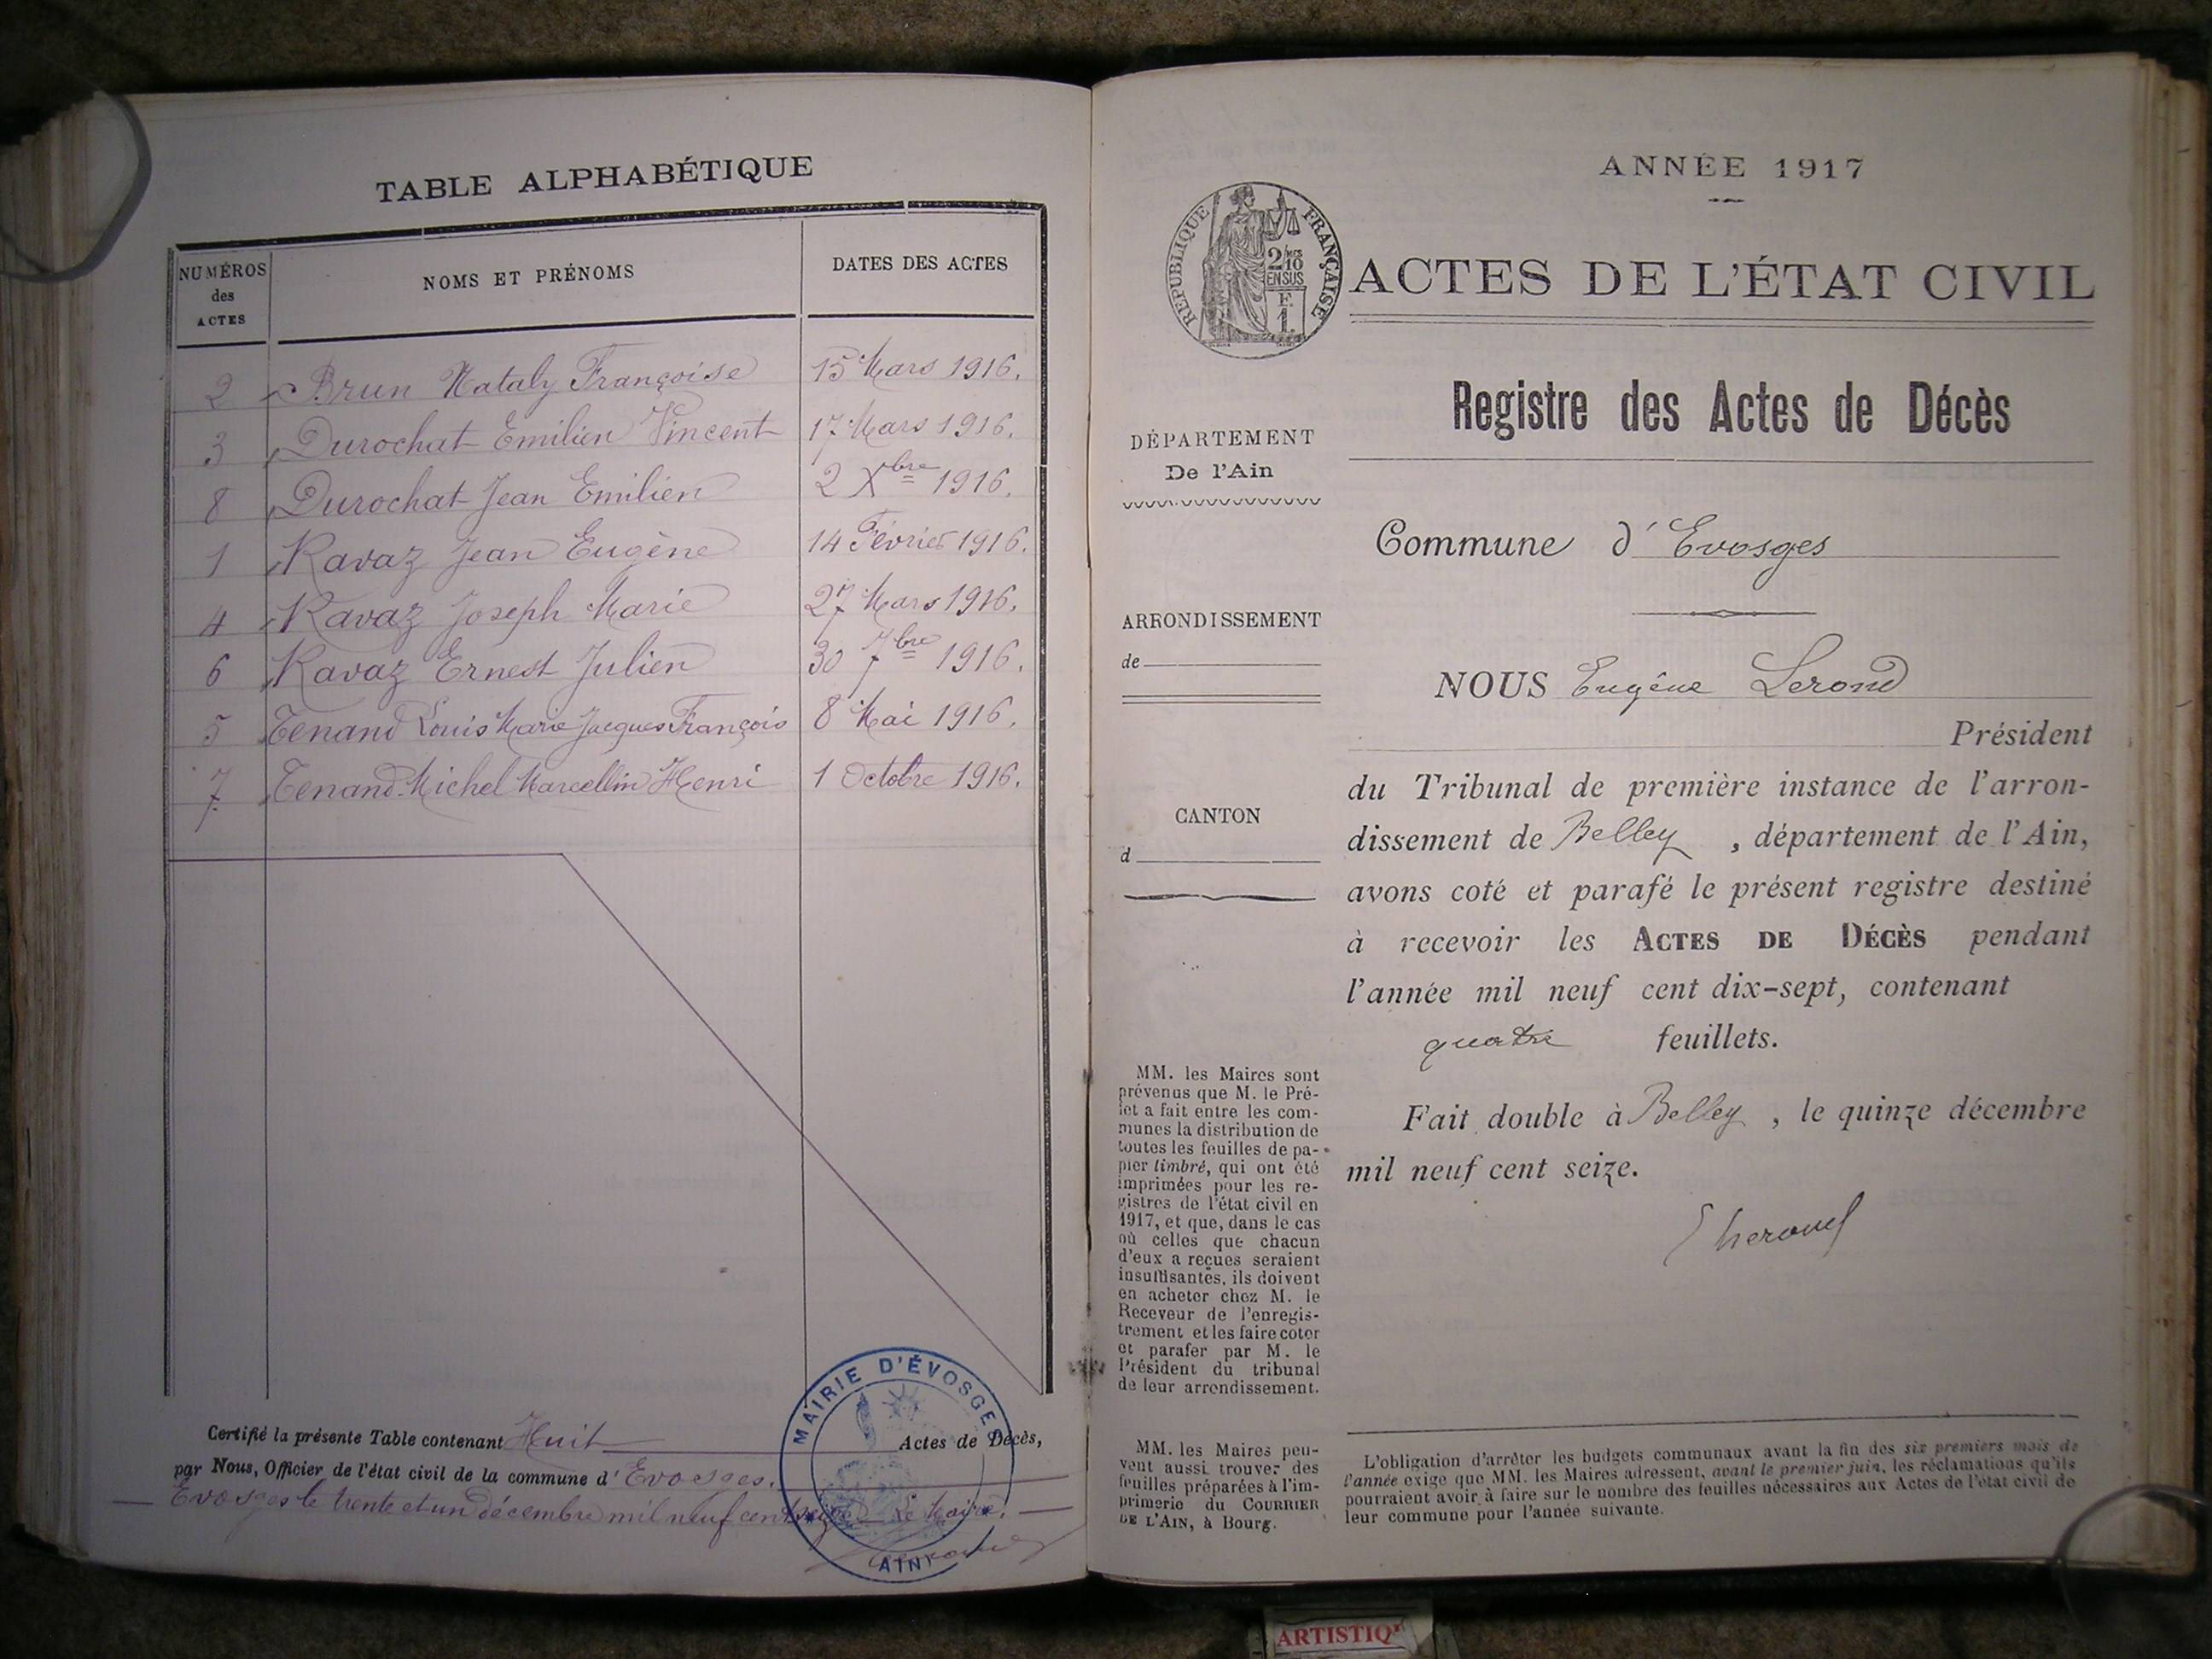 TABLE ALPHABÉTIQUE
NUMÉROS des ACTES
NOMS ET PRÉNOMS
DATES DES ACTES
2 Brun Nataly Françoise 15 Mars 1916.
3 Durochat Emilien Vincent 17 Mars 1916.
8 Durochat Jean Emilien 2 Xbre 1916.
1 Ravaz Jean Eugène 14 Février 1916.
4 Ravaz Joseph Marie 27 Mars 1916.
6 Ravaz Ernest Julien 30 7bre 1916.
5 Tenand Louis Marie Jacques François 8 Mai 1916.
7 Tenand Michel Marcellin Henri 1 Octobre 1916.
Certifié la présente Table contenant Huit Actes de Décès,
par Nous, Officier de l'état civil de la commune d'Evosges.
Evosges le trente et un décembre mil neuf cent seize Le Maire.
MAIRIE D'ÉVOSGES
AIN
ANNÉE 1917
RÉPUBLIQUE FRANÇAISE
2/10 mes
EN SUS
F.
1.
ACTES DE L'ÉTAT CIVIL
Registre des Actes de Décès
DÉPARTEMENT
De l'Ain
Commune d'Evosges
ARRONDISSEMENT
de
NOUS Eugène Lerond
Président
du Tribunal de première instance de l'arron-
dissement de Belley, département de l'Ain,
avons coté et parafé le présent registre destiné
à recevoir les ACTES DE DÉCÈS pendant
l'année mil neuf cent dix-sept, contenant
quatre feuillets.
Fait double à Belley, le quinze décembre
mil neuf cent seize.
CANTON
d
MM. les Maires sont
prévenus que M. le Pré-
fet a fait entre les com-
munes la distribution de
toutes les feuilles de pa-
pier timbré, qui ont été
imprimées pour les re-
gistres de l'état civil en
1917, et que, dans le cas
où celles que chacun
d'eux a reçues seraient
insuffisantes, ils doivent
en acheter chez M. le
Receveur de l'enregis-
trement et les faire coter
et parafer par M. le
Président du tribunal
de leur arrondissement.
MM. les Maires peu-
vent aussi trouver des
feuilles préparées à l'im-
primerie du COURRIER
DE L'AIN, à Bourg.
L'obligation d'arrêter les budgets communaux avant la fin des six premiers mois de
l'année exige que MM. les Maires adressent, avant le premier juin, les réclamations qu'ils
pourraient avoir à faire sur le nombre des feuilles nécessaires aux Actes de l'état civil de
leur commune pour l'année suivante.
ARTISTIQ